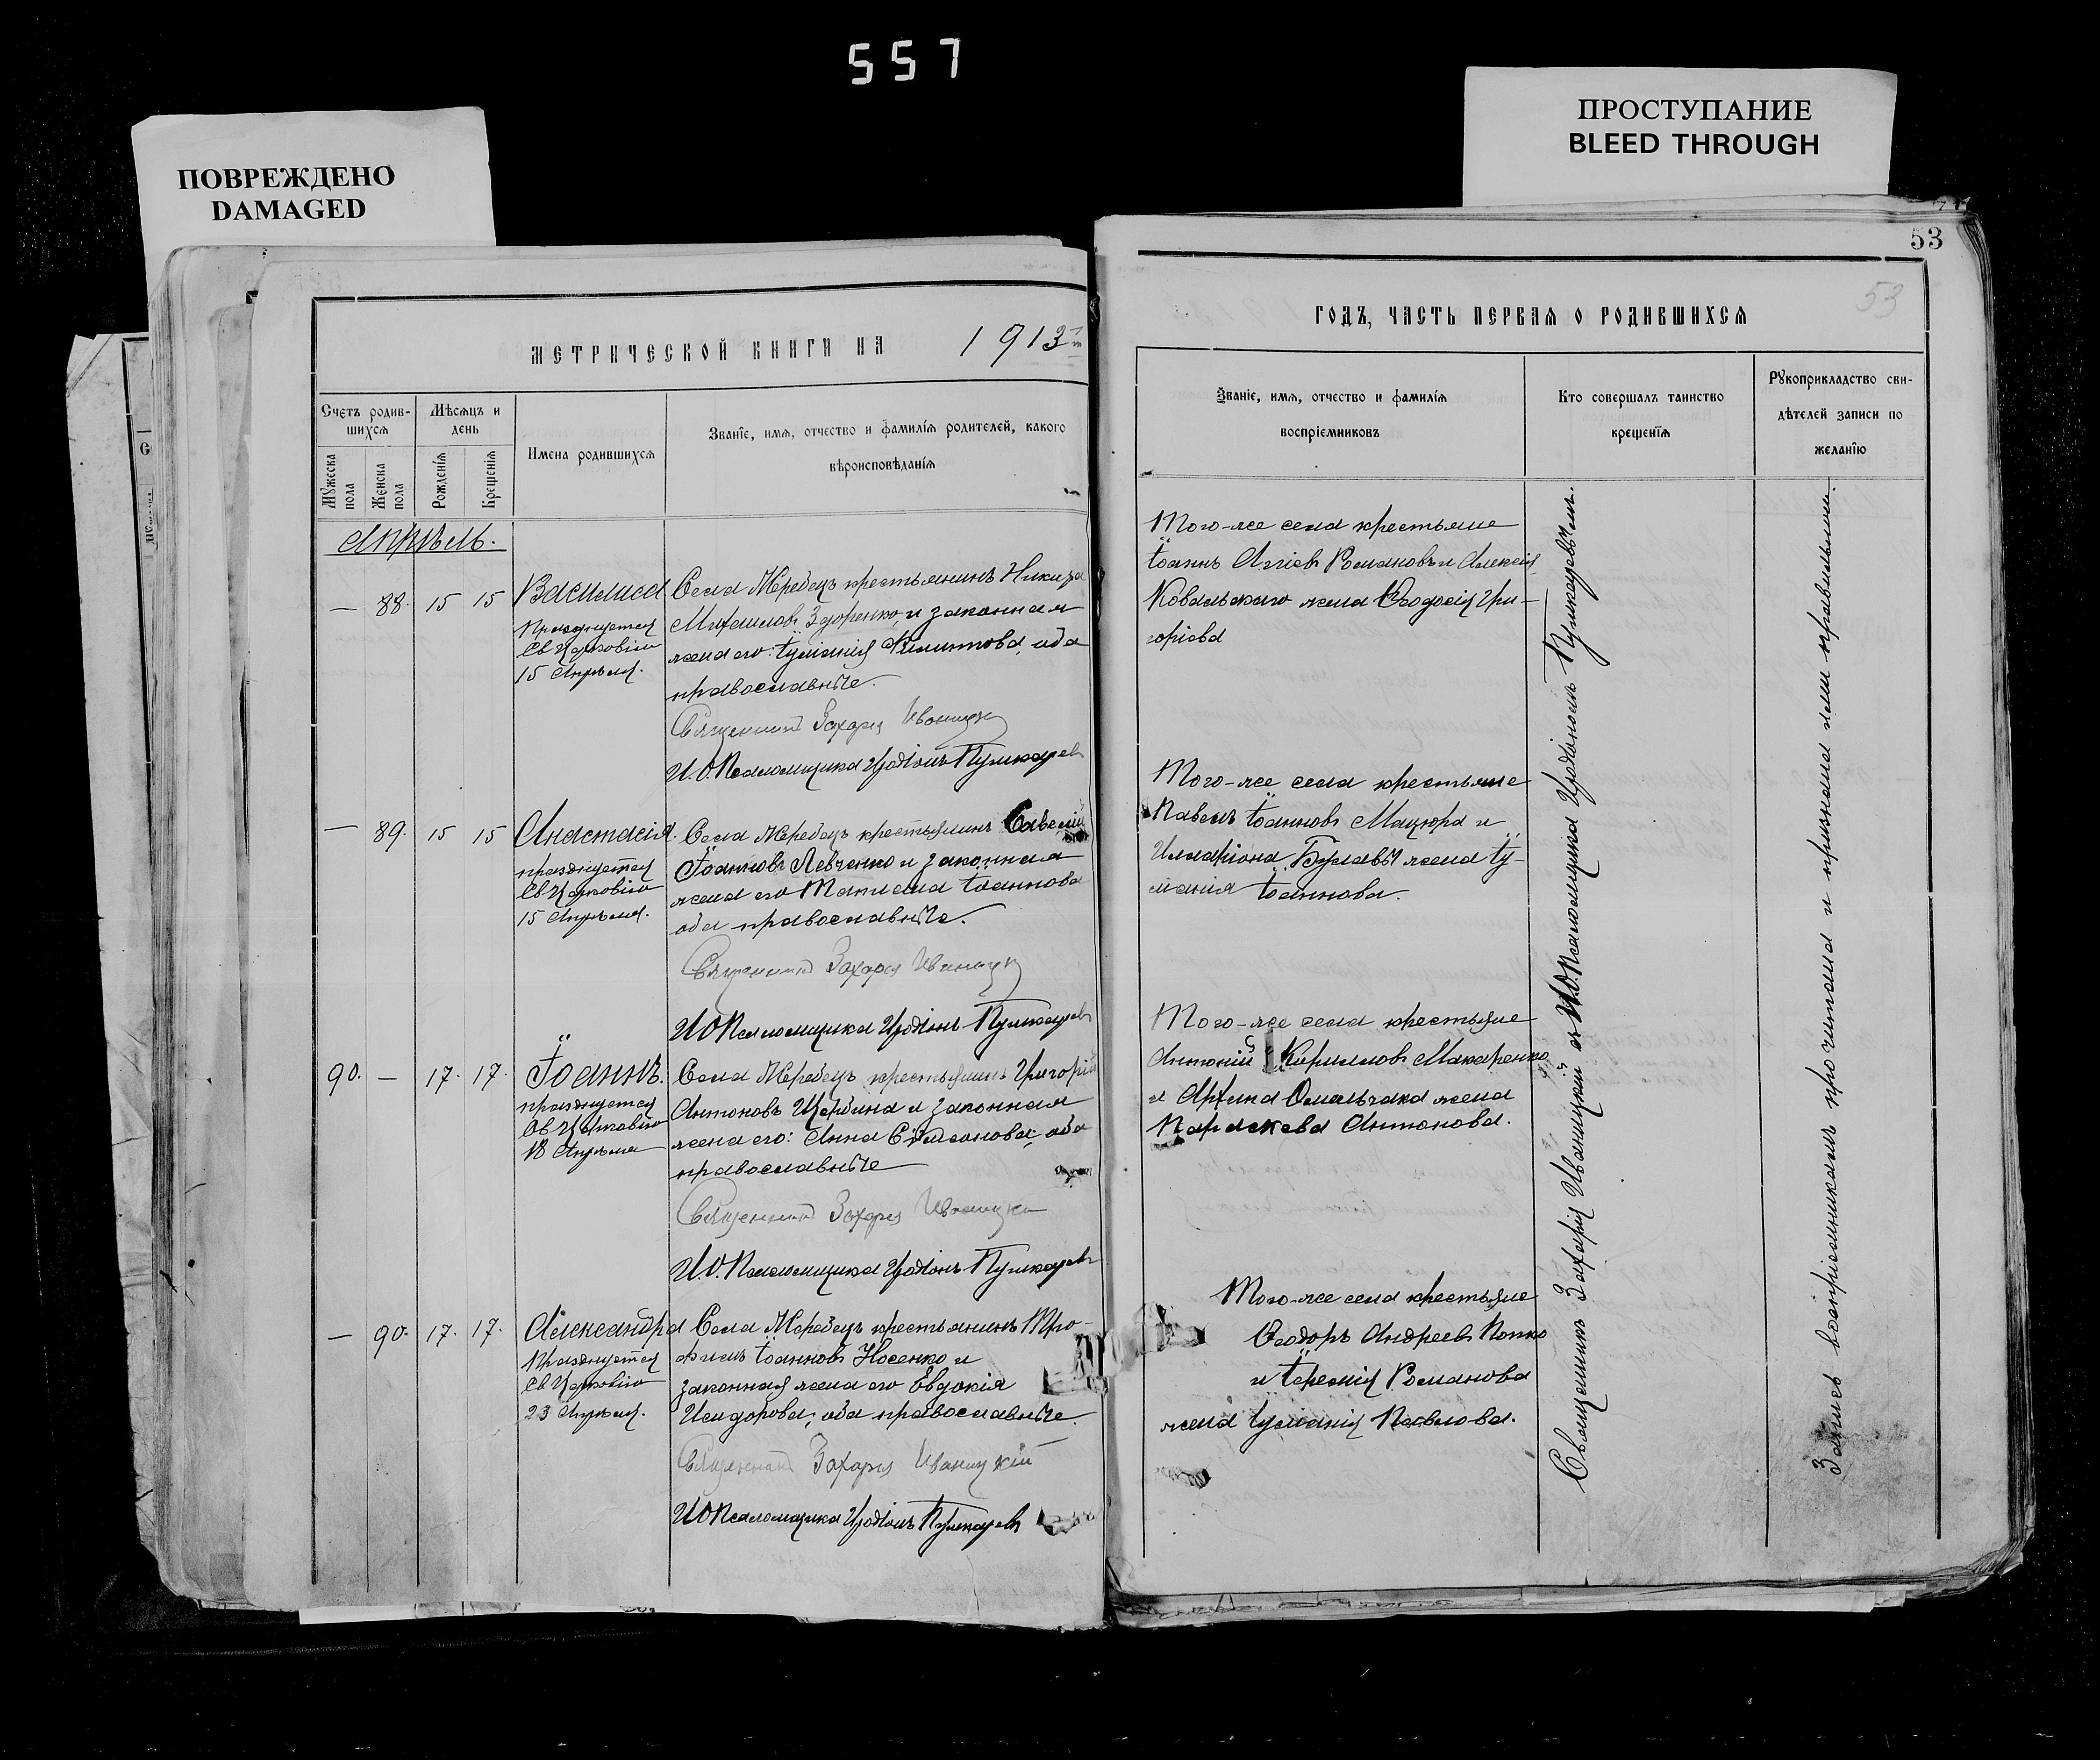 557
ПОВРЕЖДЕНО
DAMAGED
ПРОСТУПАНИЕ
BLEED THROUGH
МЕТРИЧЕСКОЙ КНИГИ НА 1913
Счетъ родив-
шихся
Мѣсяцъ и
день
Мужеска
пола
Женска
пола
Рожденія
Крещенія
Имена родившихся
Званіе, имя, отчество и фамилія родителей, какого
вѣроисповѣданія
Апрѣль.
— 88. 15 15 Василиса
празднуется
Св Церковію
15 Апрѣля.
Села Жеребецъ крестьянинъ Никита
Михаиловъ Здоренко, и законная
жена его: Іуліанія Филиппова, оба
православные.
Священникъ Захарія Иваницкій
И.О.Псаломщика Иродіонъ Пушкаревъ
— 89. 15 15 Анастасія.
празднуется
Св Церковію
15 Апрѣля.
Села Жеребецъ крестьянинъ Савелій
Іоанновъ Левченко и законная
жена его Татіана Іоаннова
оба православные.
Священникъ Захарія Иваницкій
И.О Псаломщика Иродіонъ Пушкаревъ
90. — 17. 17. Іоаннъ.
празднуется
Св Церковію
18 Апрѣля
Села Жеребецъ крестьянинъ Григорій
Антоновъ Щербина и законная
жена его: Анна Сѵмеонова, оба
православные
Священникъ Захарія Иваницкій
И.О.Псаломщика Иродіонъ Пушкаревъ
— 90. 17. 17. Александра
Празднуется
Св Церковію
23 Апрѣля.
Села Жеребецъ крестьянинъ Тро-
фимъ Іоанновъ Носенко и
законная жена его Евдокія
Исидорова; оба православные
Священникъ Захарія Иваницкій
И.О Псаломщика Иродіонъ Пушкаревъ
53
53
ГОДЪ, ЧАСТЬ ПЕРВАЯ О РОДИВШИХСЯ
Званіе, имя, отчество и фамилія
воспріемниковъ
Кто совершалъ таинство
крещенія
Рукоприкладство сви-
дѣтелей записи по
желанію
Того-же села крестьяне
Іоаннъ Романовъ и Алексія
Ковальскаго жена Ѳеодосія Гри-
горіева
Того-же села крестьяне
Павелъ Іоанновъ Мацюра и
Илларіона Булавы жена Іу-
ліанія Іоаннова.
Того-же села крестьяне
Антоній Кирилловъ Макаренко
и Омельчака жена
Параскева Антонова.
Того-же села крестьяне
Ѳеодоръ Андреевъ Попко
и Іереміи Романова
жена Іуліанія Павлова.
Священникъ Захарій Иваницкій съ И.О.Псаломщика Иродіономъ Пушкаревымъ.
Запись воспріемникамъ прочитана и признана ими правильною.